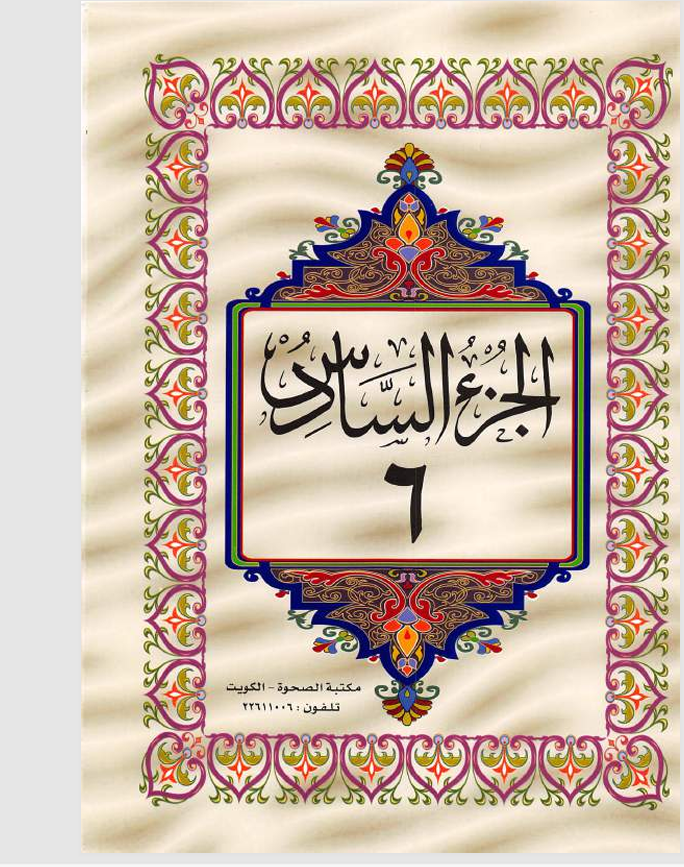 الجزء السَّادِسُ
٦
مكتبة الصحوة - الكويت
تلفون : ٢٢٦١١٠٠٦